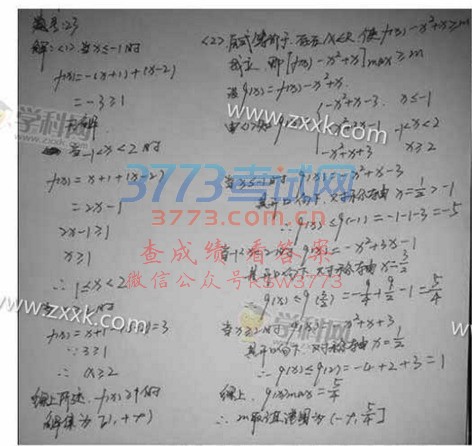 题号:23
解:<1> 当x≤-1时
f(x)=-(x+1)+(x-2)
=-3≥1
无解
当-1<x<2时
f(x)=x+1+(x-2)
=2x-1
2x-1≥1
x≥1
∴1≤x<2
时
f(x)=x+1-=3
∵3≥1
∴x≥2
综上所述,f(x)≥1的
解集为[1,+∞)
<2>原式等价于,存在x∈R,使f(x)-x²+x≥m
成立,即[f(x)-x²+x]max≥m
设g(x)=f(x)-x²+x
由<1>知g(x)=
-x²+x-3, x≤-1
-x²+3x-1, -1<x<2
-x²+x+3 x≥2
当x≤-1时 g(x)=-x²+x-3
其开口向下,对称轴x=1/2>-1
∴g(x)≤g(-1)=-1-1-3=-5
当-1<x<2时 g(x)=-x²+3x-1
其开口向下,对称轴x=3/2
∴g(x)≤g(3/2)=-9/4+9/2-1=5/4
当x≥2时 g(x)=-x²+x+3
其开口向下,对称轴x=1/2
∴g(x)≤g(2)=-4+2+3=1
综上,g(x)max=5/4
∴m取值范围为(-∞,5/4]
学科网
www.zxxk.com
3773考试网
3773.com.cn
查成绩 看答案
微信公众号KSW3773
学科网
www.zxxk.com
www.zxxk.com